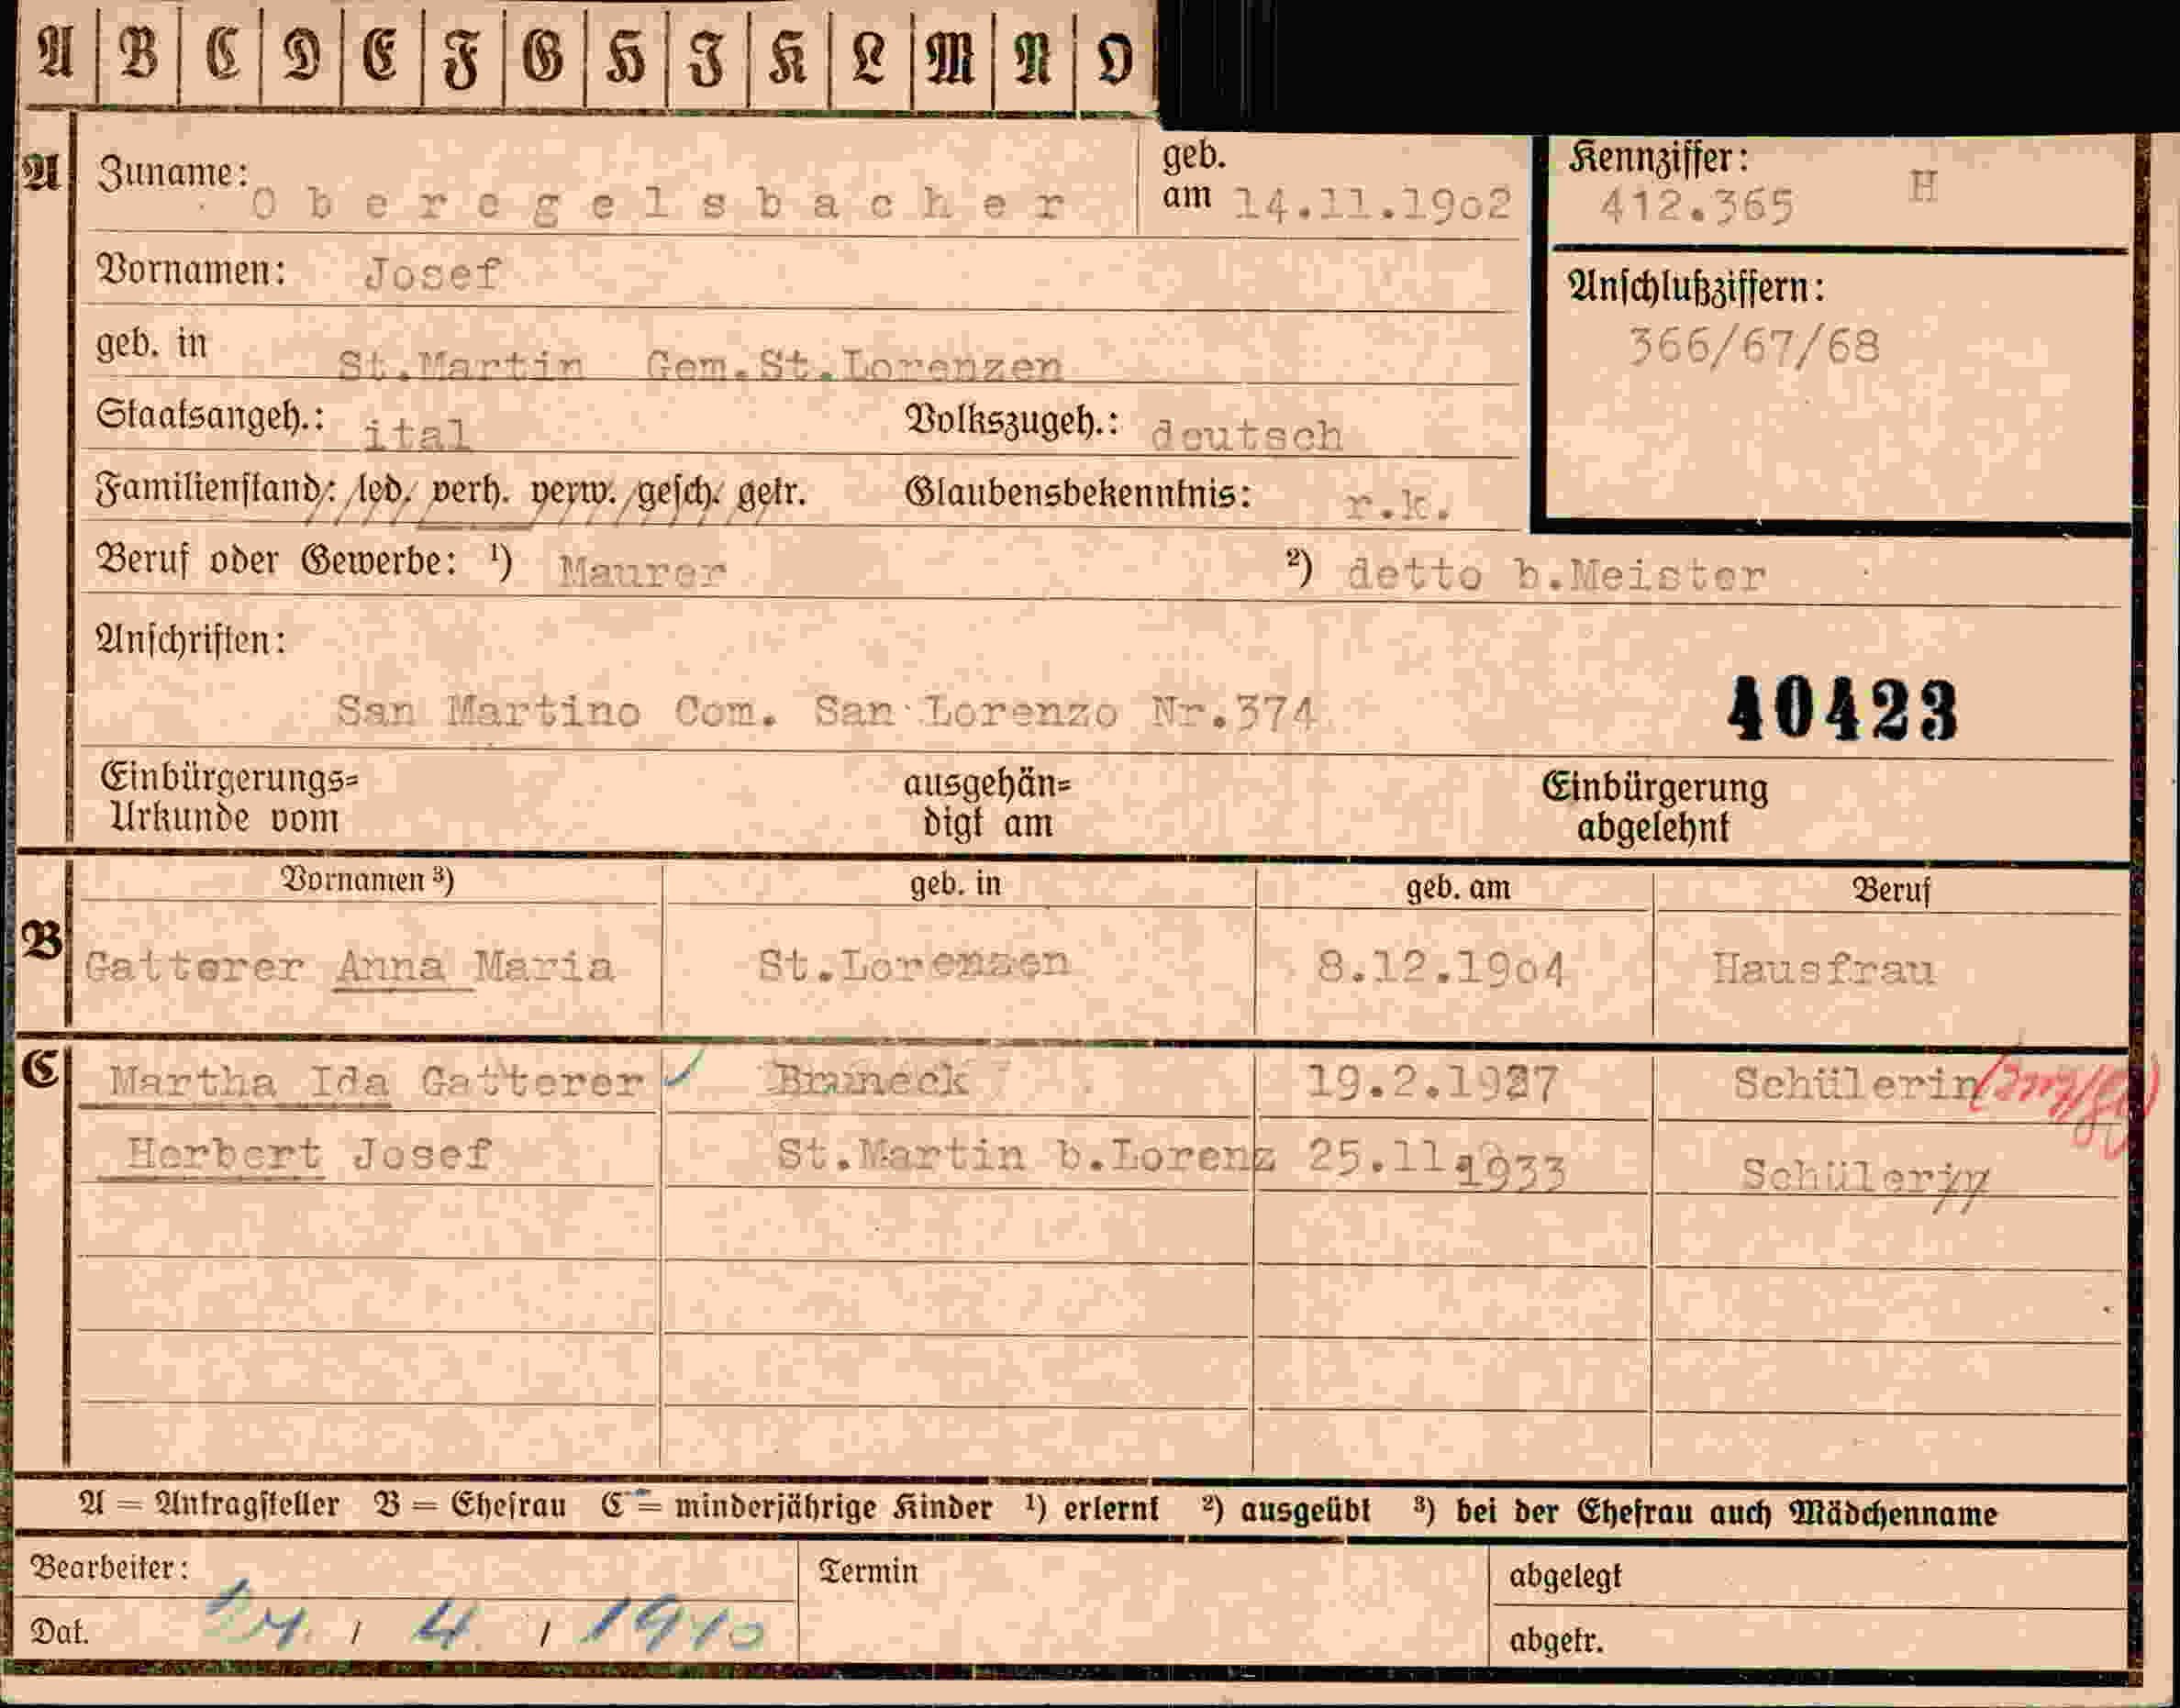 A B C D E F G H I K L M N O
A Zuname: O b e r e g e l s b a c h e r geb. am 14.11.19o2 Kennziffer: 412.365 H
Vornamen: Josef Anschlußziffern:
366/67/68
geb. in St.Martin Gem.St.Lorenzen
Staatsangeh.: ital Volkszugeh.: deutsch
Familienstand: led. verh. verw. gesch. getr. Glaubensbekenntnis: r.k.
Beruf oder Gewerbe: ¹) Maurer ²) detto b.Meister
Anschriften:
San Martino Com. San Lorenzo Nr.374 40423
Einbürgerungs= ausgehän= Einbürgerung
Urkunde vom digt am abgelehnt
Vornamen ³) geb. in geb. am Beruf
B Gatterer Anna Maria St.Lorenzen 8.12.19o4 Hausfrau
C Martha Ida Gatterer Bruneck 19.2.1927 Schülerin
Herbert Josef St.Martin b.Lorenz 25.11.1933 Schüler
A = Antragsteller B = Ehefrau C = minderjährige Kinder ¹) erlernt ²) ausgeübt ³) bei der Ehefrau auch Mädchenname
Bearbeiter: Termin abgelegt
Dat. / 4. / 1940 abgetr.